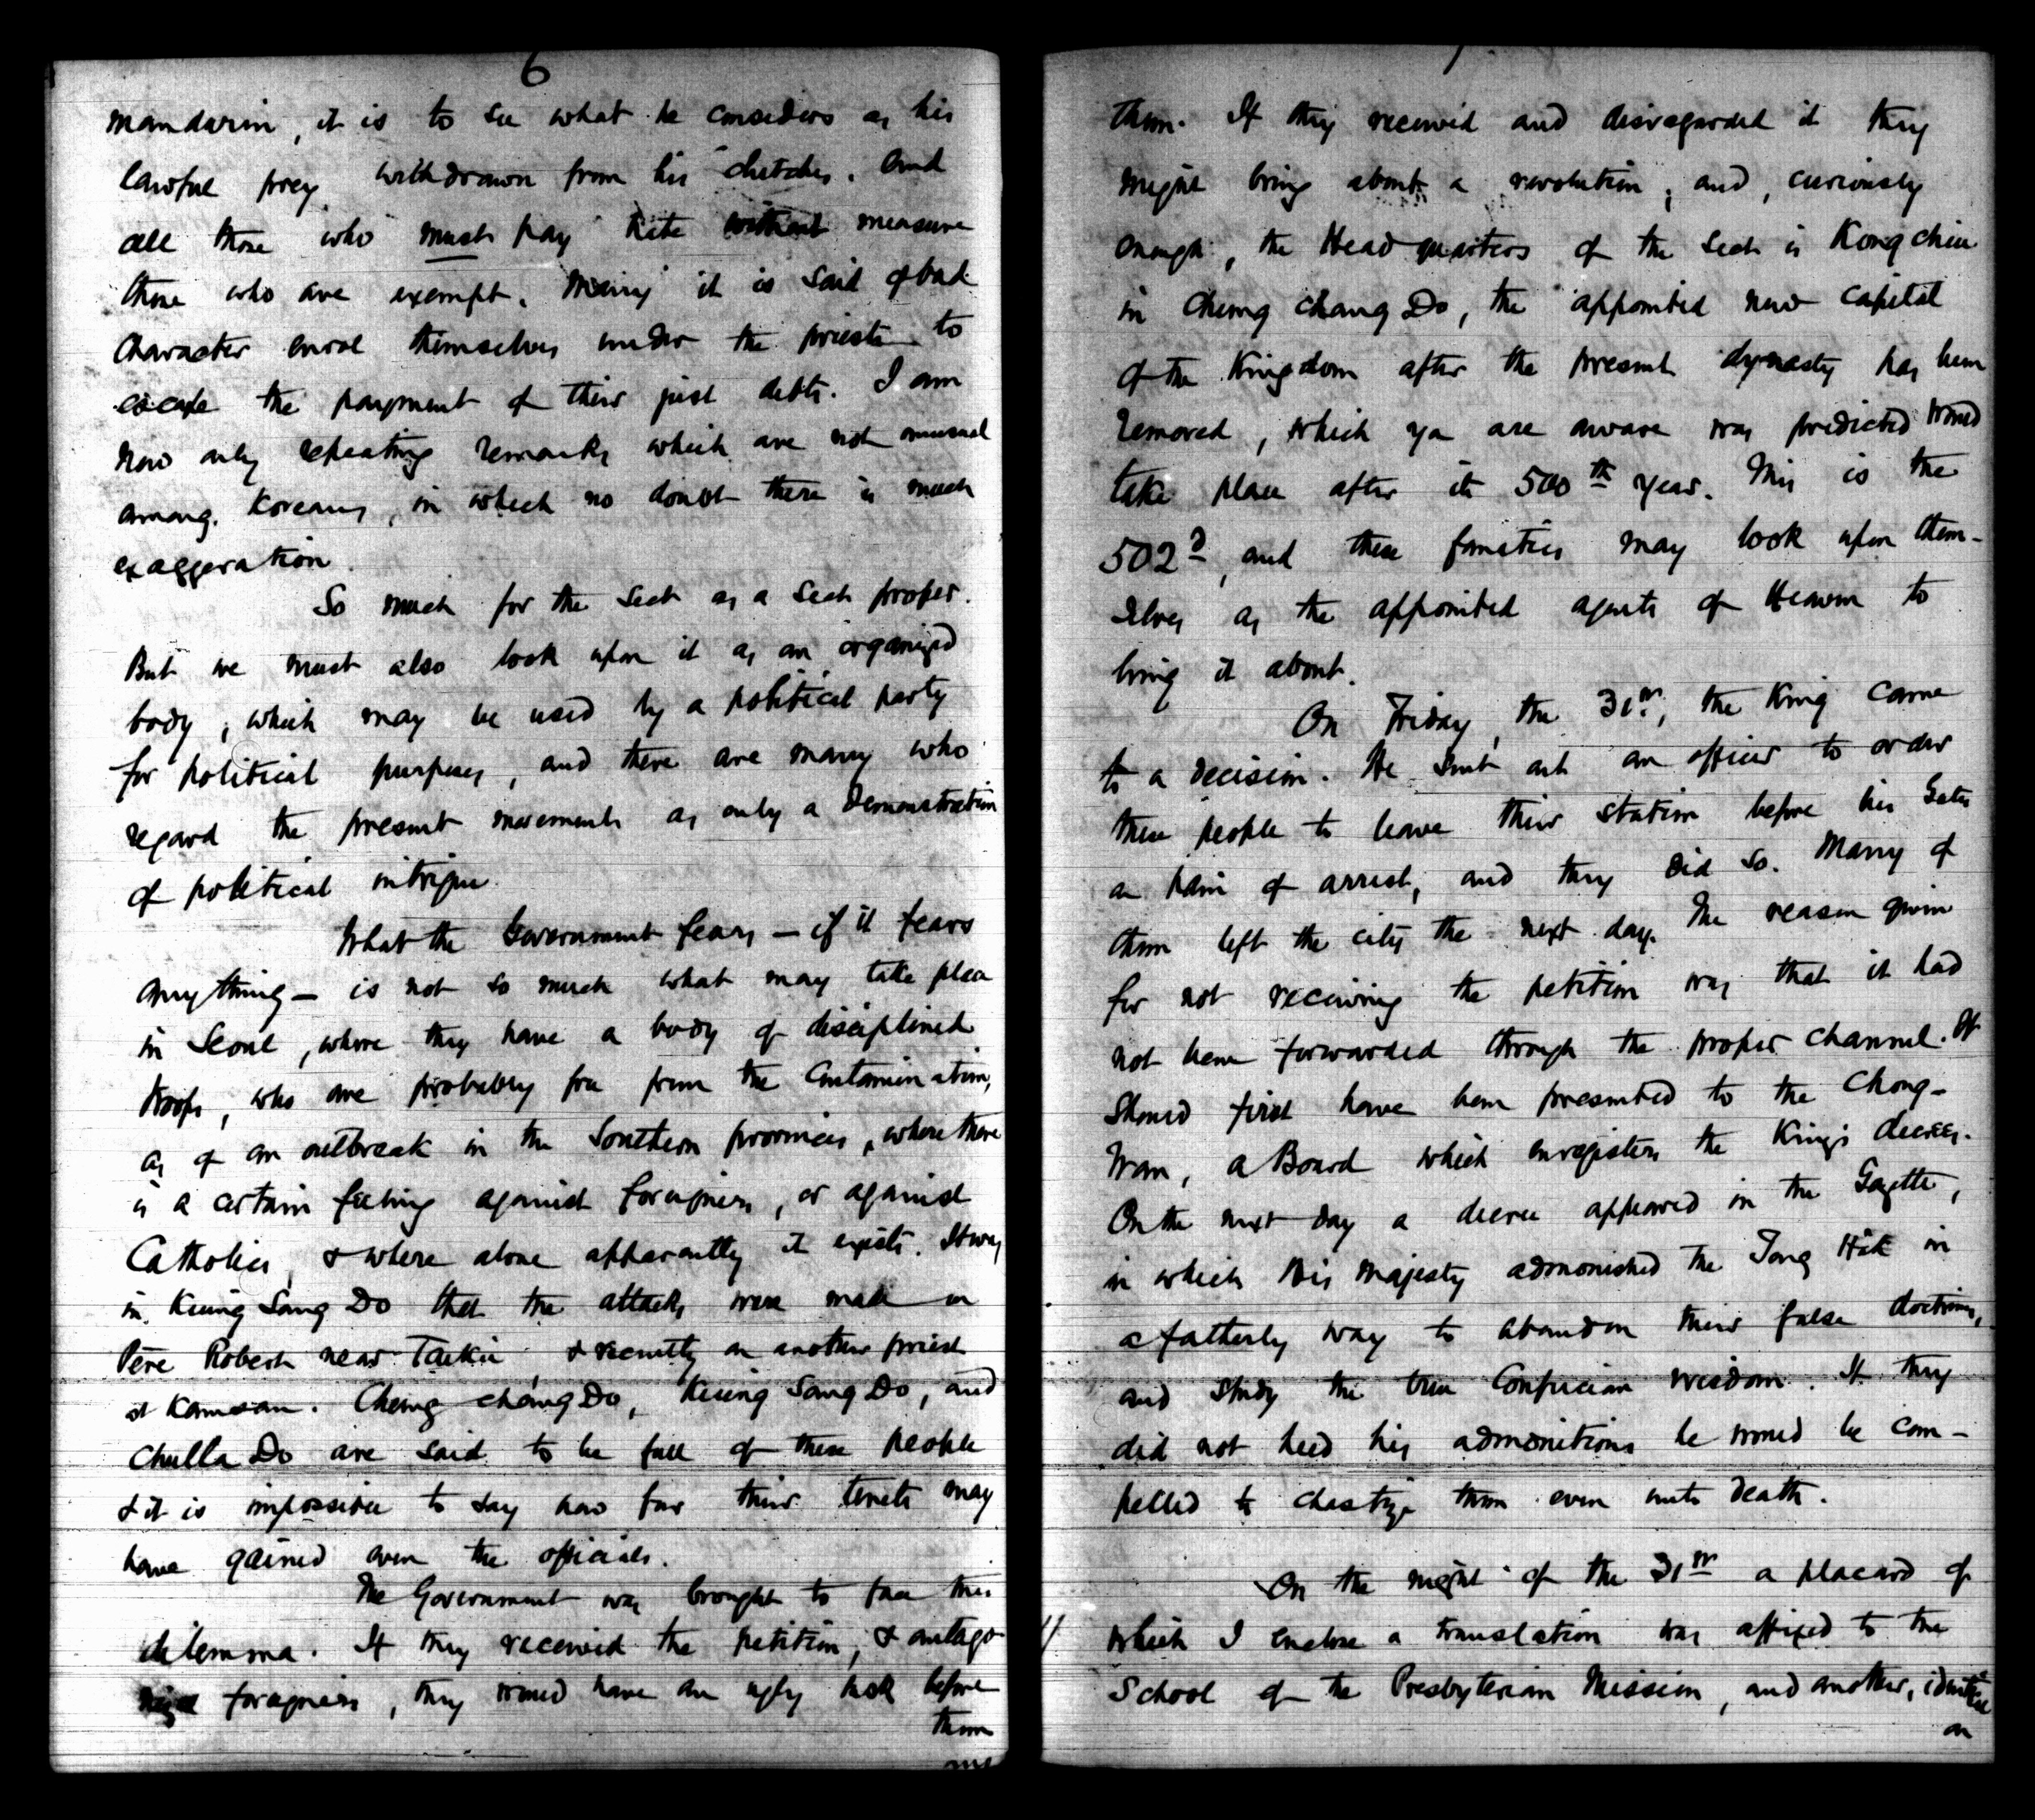 6
mandarin, it is to see what he considers as his
lawful prey withdrawn from his clutches. And
all those who must pay hate without measure
those who are exempt. Many it is said of bad
character enrol themselves under the priests to
escape the payment of their just debts. I am
now only repeating remarks which are not unusual
among Koreans, in which no doubt there is much
exaggeration.
So much for the Sect as a Sect proper.
But we must also look upon it as an organized
body, which may be used by a political party
for political purposes, and there are many who
regard the present movements as only a demonstration
of political intrigue.
What the Government fears — if it fears
anything — is not so much what may take place
in Seoul, where they have a body of disciplined
troops, who are probably free from the contamination,
as of an outbreak in the Southern provinces, where there
is a certain feeling against foreigners, or against
Catholics, & where alone apparently it exists. It was
in Kiung Sang Do that the attacks were made on
Père Robert near Taiku & recently on another priest
at Kamsan. Chung Chang Do, Kiung Sang Do, and
Chulla Do are said to be full of these people
& it is impossible to say how far their tenets may
have gained over the officials.
The Government was brought to face this
dilemma. If they received the petition, & antago-
nize foreigners, they would have an ugly task before
them
7
them. If they received and disregarded it they
might bring about a revolution; and, curiously
enough, the Head quarters of the Sect is Kong chiu
in Chung Chang Do, the appointed new capital
of the Kingdom after the present dynasty has been
removed, which you are aware was predicted would
take place after its 500th year. This is the
502d, and these fanatics may look upon them-
selves as the appointed agents of Heaven to
bring it about.
On Friday, the 31st, the King came
to a decision. He sent out an officer to order
these people to leave their station before his Gates
on pain of arrest, and they did so. Many of
them left the city the next day. The reason given
for not receiving the petition was that it had
not been forwarded through the proper channel. It
should first have been presented to the Chong-
Won, a Board which enregisters the King's decrees.
On the next day a decree appeared in the Gazette,
in which His Majesty admonished the Tong Hak in
a fatherly way to abandon their false doctrines,
and study the true Confucian wisdom. If they
did not heed his admonitions he would be com-
pelled to chastize them even unto death.
On the night of the 31st a placard of
which I enclose a translation was affixed to the
School of the Presbyterian Mission, and another, identical
on